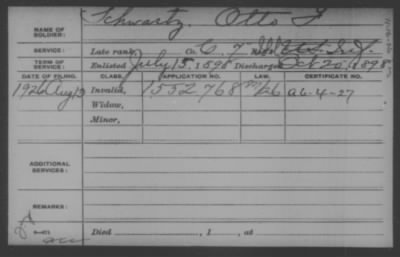 Schwartz, Otto F
NAME OF SOLDIER:
SERVICE: Late rank, Co. C, 7 Reg't U.S. Inf.
TERM OF SERVICE: Enlisted July 15, 1898 Discharged Oct 20, 1898
DATE OF FILING. CLASS. APPLICATION NO. LAW. CERTIFICATE NO.
1926 Aug 13 Invalid, 1552768 a6-4-27
Widow,
Minor,
ADDITIONAL SERVICES:
REMARKS:
Died , 1 , at